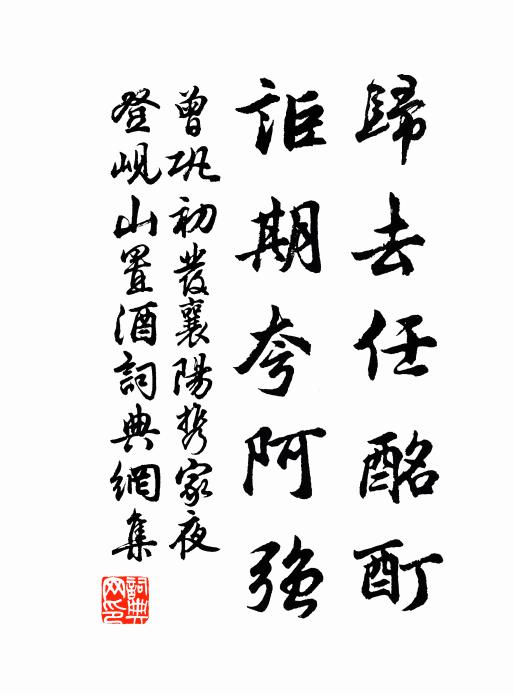 歸去任酩酊
詎期夸阿強
曾巩初發襄陽携家夜
登峴山置酒詞典網集
詞典
网印